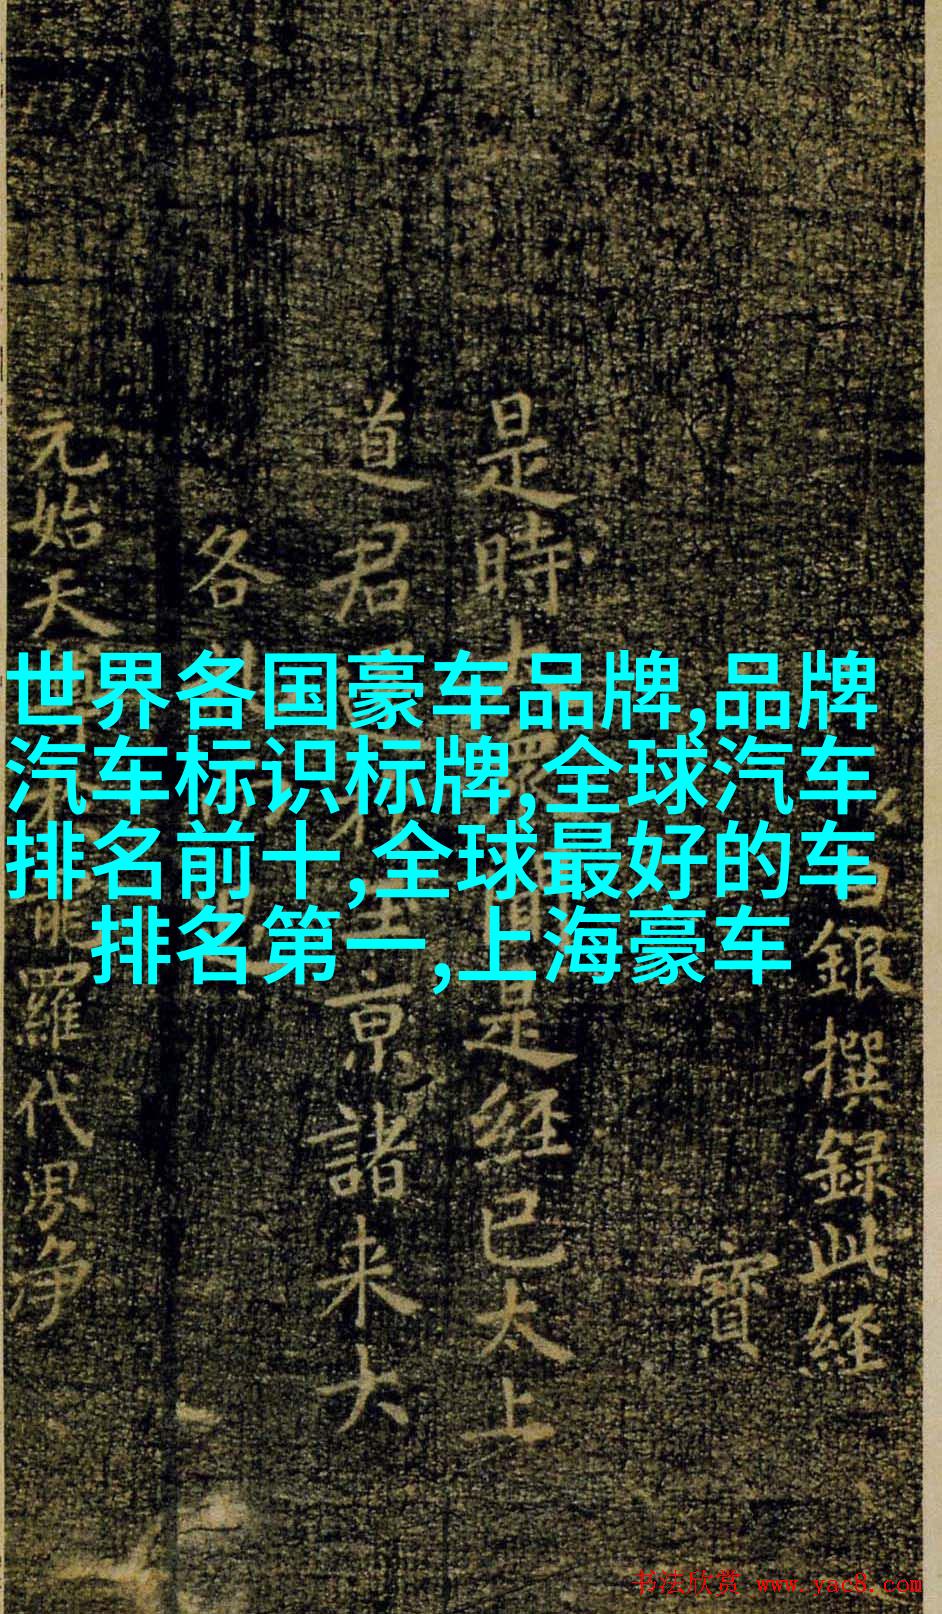 世界各国豪车品牌,品牌
汽车标识标牌,全球汽车
排名前十,全球最好的车
排名第一,上海豪车
白銀撰録此経
寶
是時 懷 是經已太上
道君 京諸来大
各
元始天 羅代界净
书法欣赏 www.yac8.com